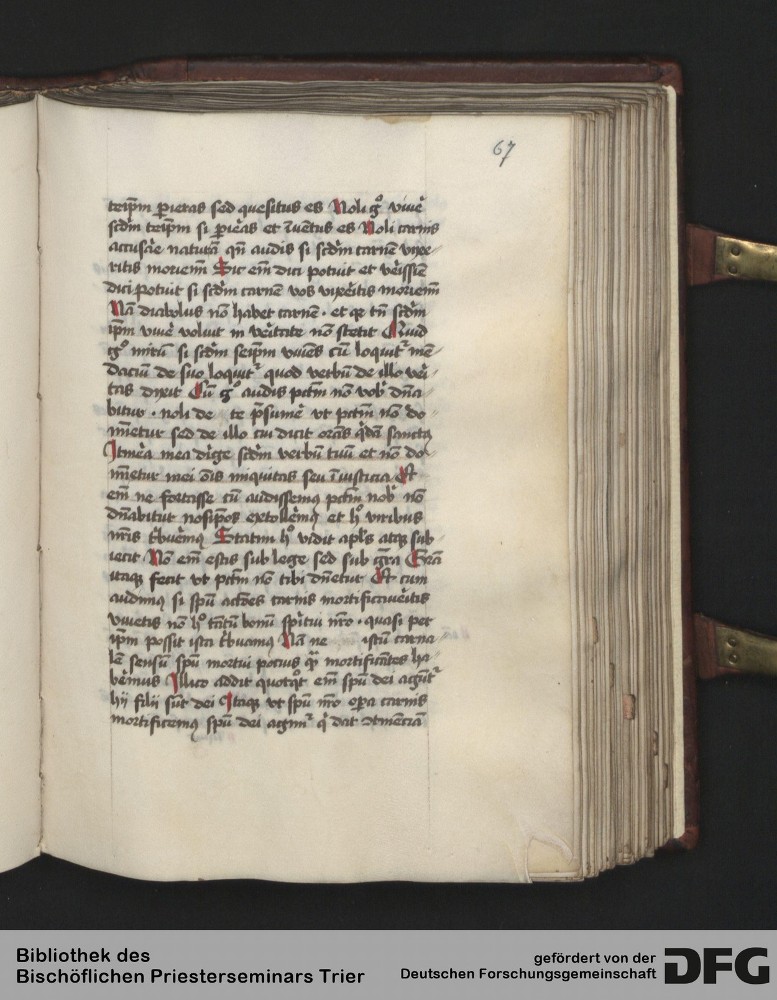 67
teip̄m p̱ieras sed quesitus es Noli gͦ viuē
scd̄m teip̄m si p̱ieras et īuētus es Noli carnis
accusar̄e naturā qn̄ audis si scd̄m carnē vixe
ritis moriem̄ Sic em̄ dici potuit et v̄issīe
dici potuit si scd̄m carnē vos vix̄itis moriem̄
Nā diabolus nō habet carnē · et tn̄ scd̄m
ip̄m viuē voluit in v̄itate nō stetit Quid
gͦ mirū si scd̄m seip̄m viuēs cū loquit᷑ men
daciū de suo loquit᷑ quod verbū de illo v̄i
tas dixit Cū gͦ audis pctm̄ nō vob̄ dn̄a
bitur · noli de te p̄sumē vt pctm̄ nō do
mīetur sed de illo cui dicit orās qdā sanctꝰ
Itin̄a mea dirige scd̄m verbū tuū et nō do
mīetur mei oīs iniquitas seu īiusticia Et
em̄ ne fortasse cū audissemꝰ pctm̄ nob̄ nō
dn̄abitur nosip̄os extollem̄ꝰ et hͦ viribus
nr̄is t̄buem̄ꝰ Statim hͦ vidit apl̄s atqꝫ sub
iecit Nō em̄ estis sub lege sed sub gr̄a Gr̄a
itaqꝫ fecit vt pctm̄ nō tibi dn̄etur Et cum
audimꝰ si spū act̄ōes carnis mortificauēitis
viuetis nō hͦ tātū bonū spiritui nr̄o · quasi per
ip̄m possit ista t̄buamꝰ Nā ne istū carna
lē sensū spū mortui potius q̄ mortificātes ha
b̄emus Illico addit quotqͦt em̄ spū dei agūt᷑
hij filij sūt dei Itaqꝫ vt spū nr̄o oꝑa carnis
mortificemꝰ spū dei agim᷑ q̄ dat ↄtinēciā
Bibliothek des
Bischöflichen Priesterseminars Trier
gefördert von der
Deutschen Forschungsgemeinschaft
DFG